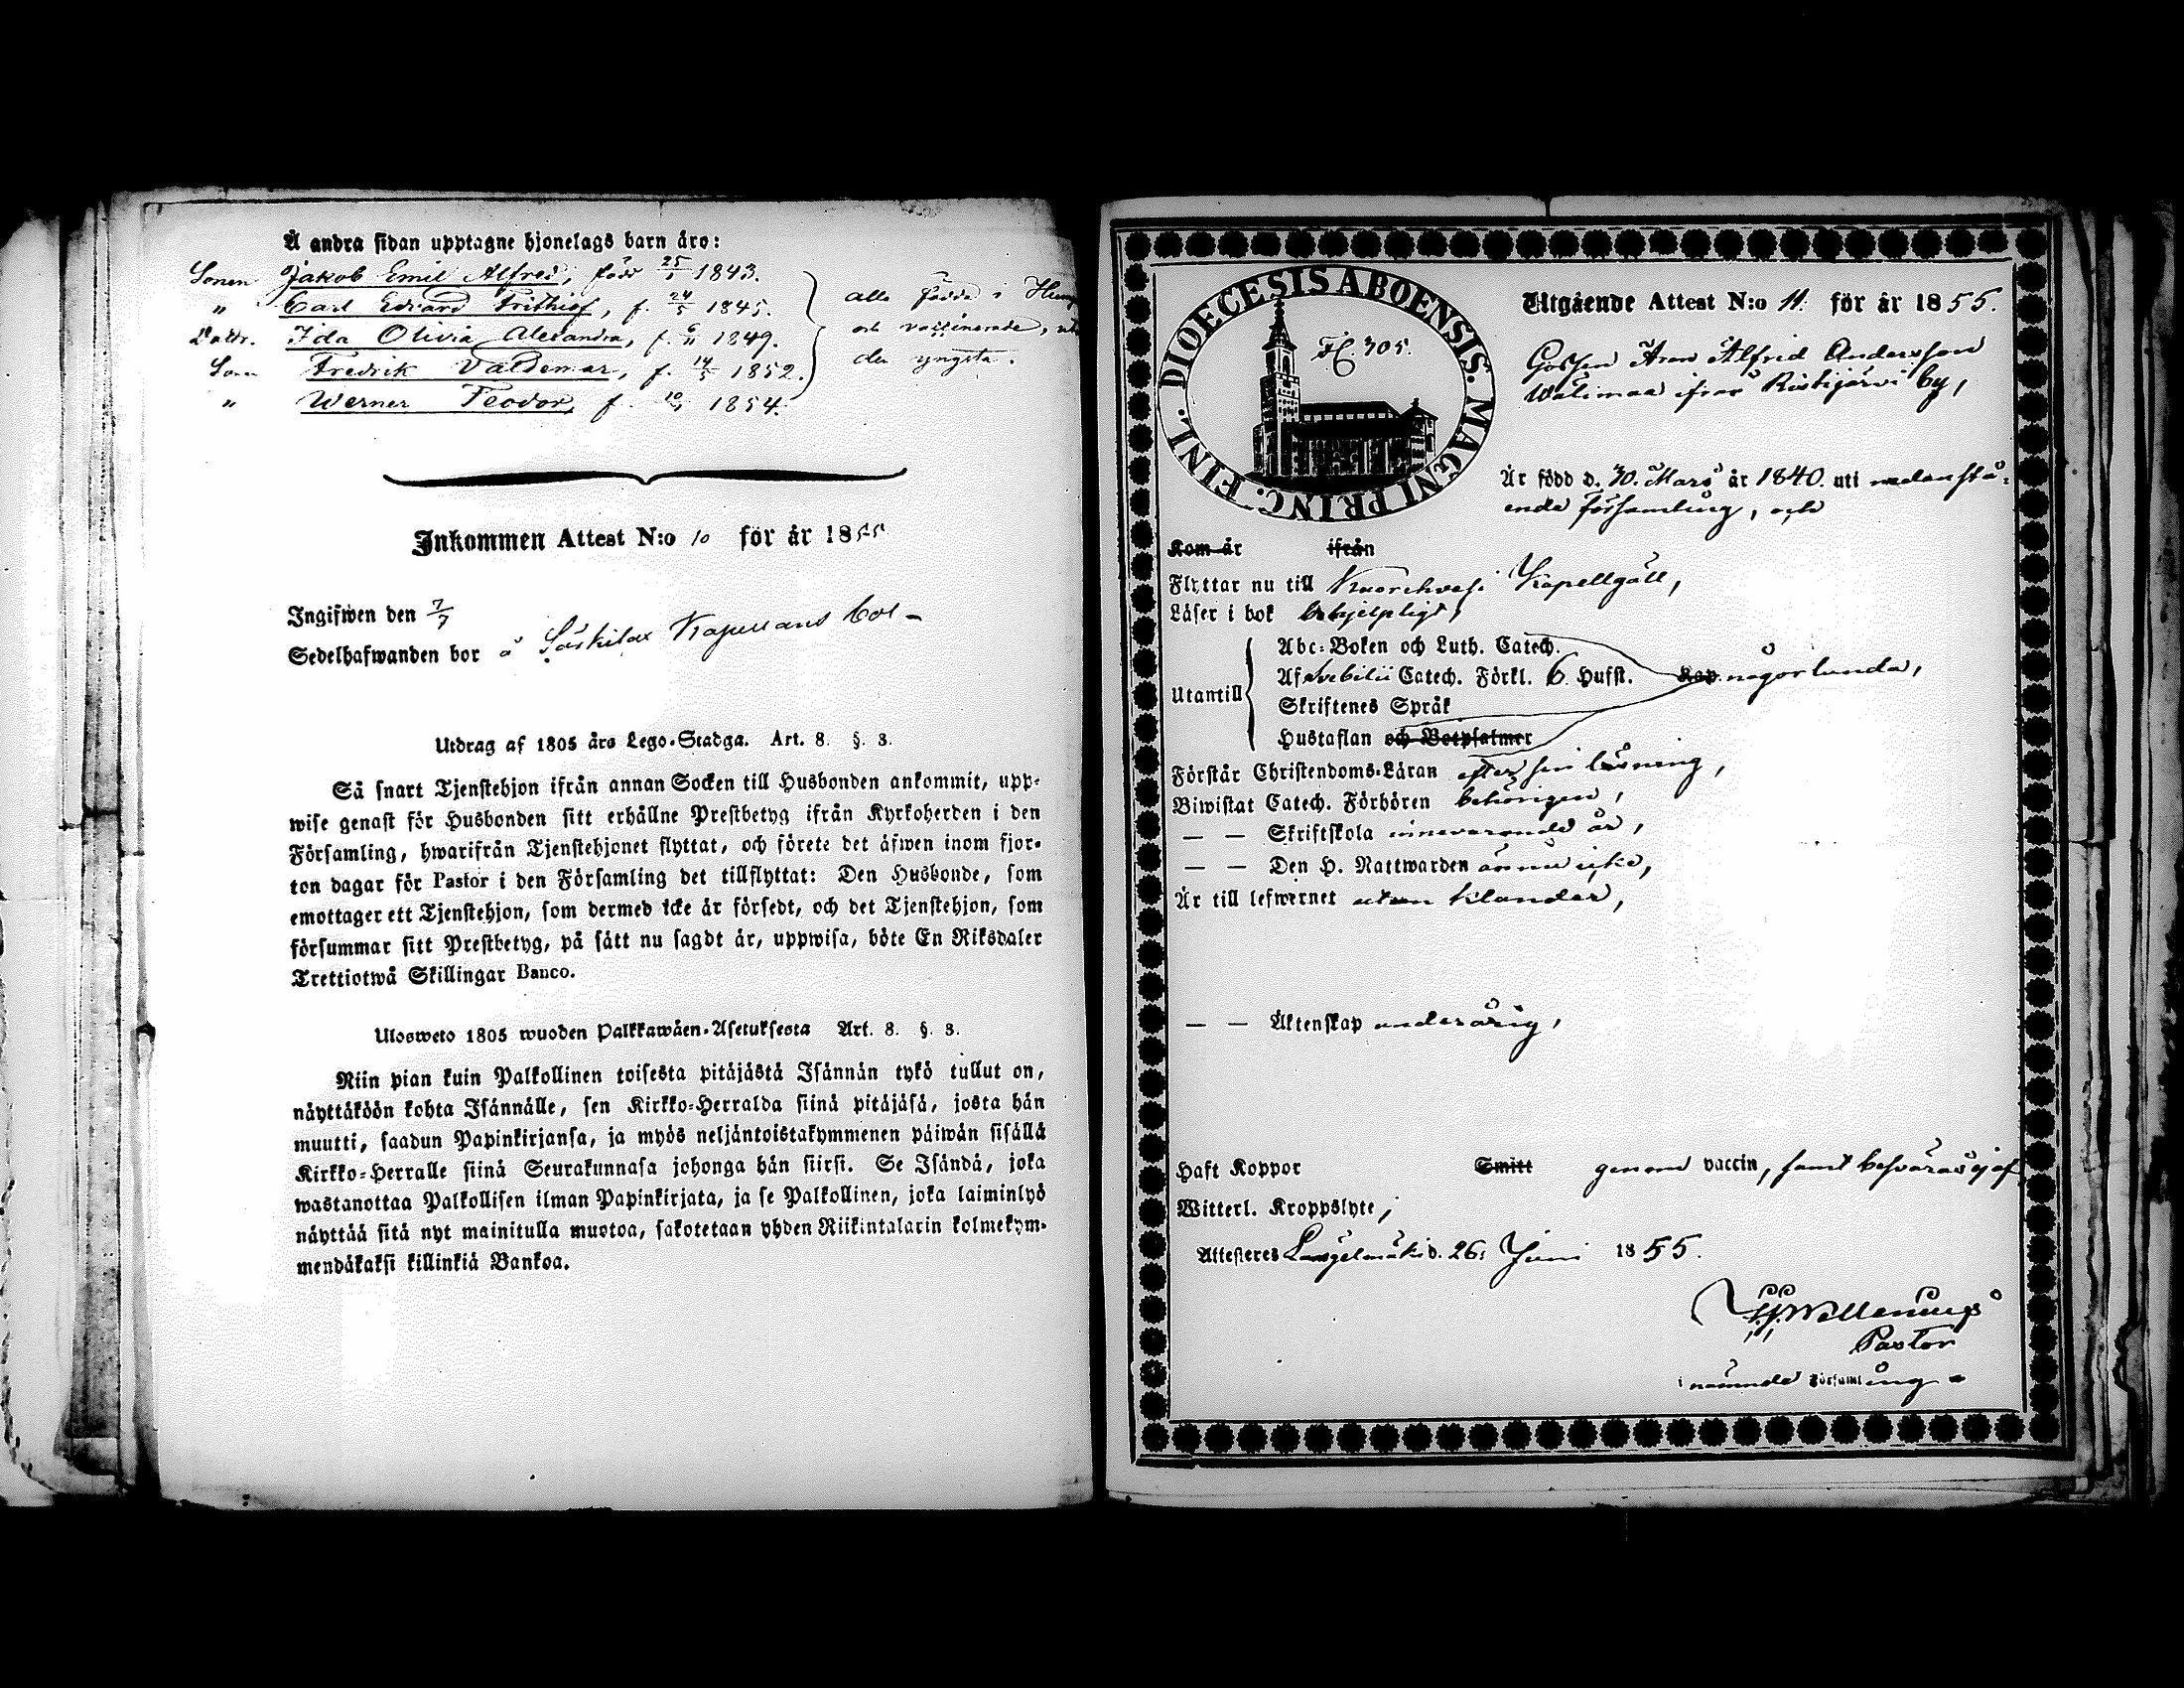 Å andra sidan upptagne hjonelags barn äro:
Sonen Jakob Emil Alfred, född 25/1 1843.
" Carl Edvard Frithiof, f. 24/5 1845.
Dottr. Ida Olivia Alexandra, f. 6/11 1849.
Son Fredrik Valdemar, f. 14/5 1852.
" Werner Feodor, f. 1854.
alla födde i
och vaccinerade,
den yngsta.
Inkommen Attest N:o 10 för år 1855
Ingifwen den 7/7
Sedelhafwanden bor å Särkilax Kapellans bol-
Utdrag af 1805 års Lego-Stadga. Art. 8. §. 3.
Så snart Tjenstehjon ifrån annan Socken till Husbonden ankommit, upp-
wise genast för Husbonden sitt erhållne Prestbetyg ifrån Kyrkoherden i den
Församling, hwarifrån Tjenstehjonet flyttat, och förete det äfwen inom fjor-
ton dagar för Pastor i den Församling det tillflyttat: Den Husbonde, som
emottager ett Tjenstehjon, som dermed icke är försedt, och det Tjenstehjon, som
försummar sitt Prestbetyg, på sätt nu sagdt är, uppwisa, böte En Riksdaler
Trettiotwå Skillingar Banco.
Ulosweto 1805 wuoden Palkkawäen-Asetuksesta Art. 8. §. 3.
Niin pian kuin Palkollinen toisesta pitäjästä Isännän tykö tullut on,
näyttäköön kohta Isännälle, sen Kirkko-Herralda siinä pitäjäsä, josta hän
muutti, saadun Papinkirjansa, ja myös neljäntoistakymmenen päiwän sisällä
Kirkko-Herralle siinä Seurakunnasa johonga hän siirsi. Se Isändä, joka
wastanottaa Palkollisen ilman Papinkirjata, ja se Palkollinen, joka laiminlyö
näyttää sitä nyt mainitulla muotoa, sakotetaan yhden Riikintalarin kolmekym-
mendäkaksi killinkiä Bankoa.
DIOECESIS ABOENSIS. MAGNI PRINC. FINL.
Fl. 305.
Utgående Attest N:o 11. för år 1855.
Gossen Aron Alfrid Andersson
Wälimaa ifrån Ristijärvi by,
Är född d. 30. Mars år 1840. uti nedanstå-
ende församling, och
Kom år ifrån
Flyttar nu till Kuorehvesi Kapellgäll,
Läser i bok behjelpligt,
Utantill
Abc-Boken och Luth. Catech.
Af Svebilii Catech. Förkl. 6. Hufst. Kap. någorlunda,
Skriftenes Språk
Hustaflan och Botpsalmer
Förstår Christendoms-Läran efter sin läsning,
Biwistat Catech. Förhören behörigen,
— — Skriftskola innevarande år,
— — Den H. Nattwarden ännu icke,
Är till lefwernet utan klander,
— — Äktenskap underårig,
Haft Koppor Smitt genom vaccin, samt besväras ej af
Witterl. Kroppslyte;
Attesteras Längelmäki d. 26. Juni 1855.
Pastor
i nämnde Församling